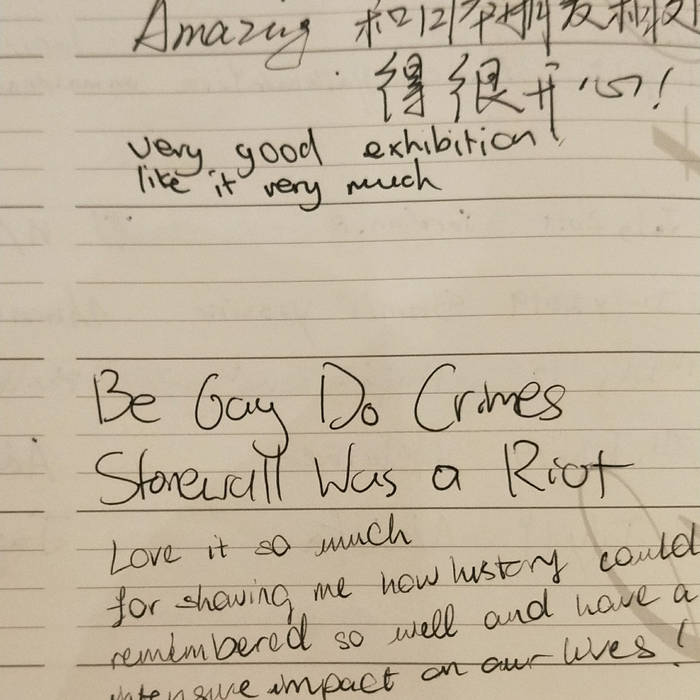 Amazing 和
得很开心!
very good exhibition!
like it very much
Be Gay Do Crimes
Stonewall Was a Riot
Love it so much
for showing me how history could
remembered so well and have a
intensive impact on our lives!